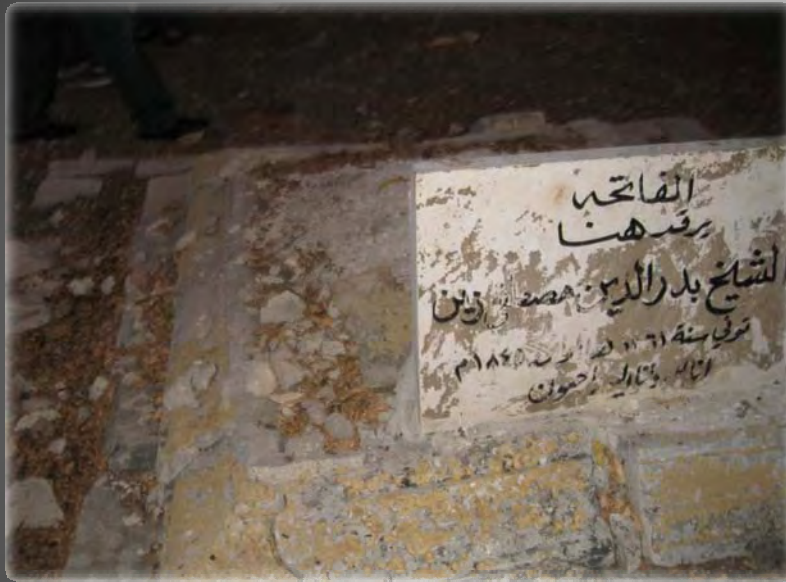 الفاتحه
يرقد هنا
الشيخ بدر الدين مصطفى زين
توفي سنة ١٢٦١ هـ الموافق ١٨٤٥م
انا لله وانا اليه راجعون